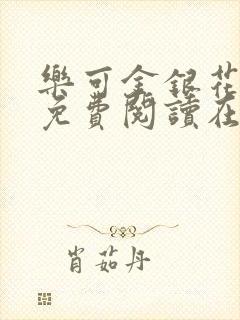 樂可金銀花
免費閱讀在
肖茹丹